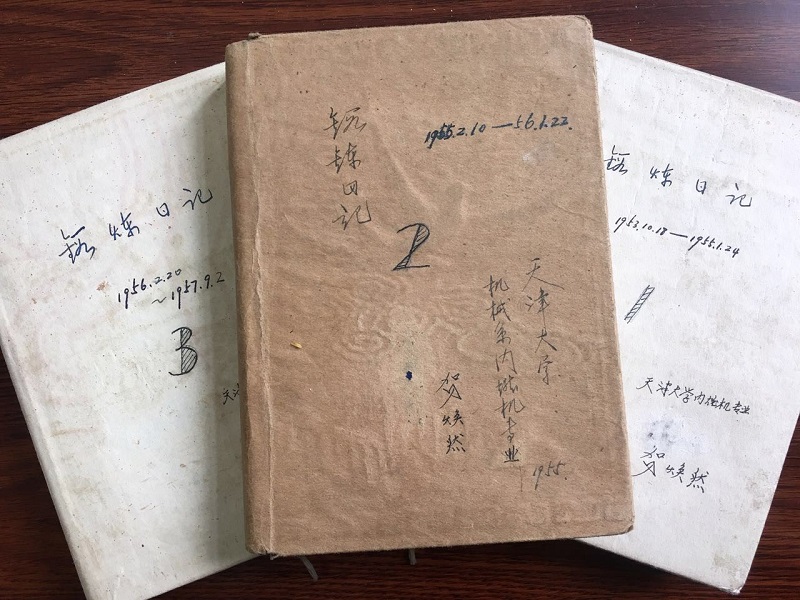 锻炼日记
1956.2.20
～1957.9.2
3
天
锻炼日记
1955.2.10—56.1.22.
2
天津大学
机械系内燃机专业
1955.
贺焕然
锻炼日记
1953.10.18—1955.1.24
1
天津大学内燃机专业
贺焕然